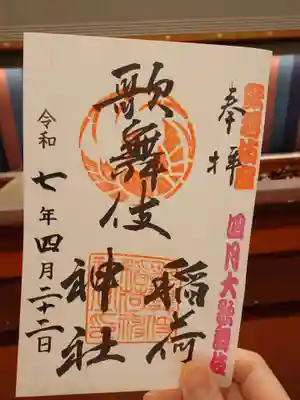 奉拝
四月大歌舞伎
歌舞伎
稲荷
神社
令和七年四月二十二日